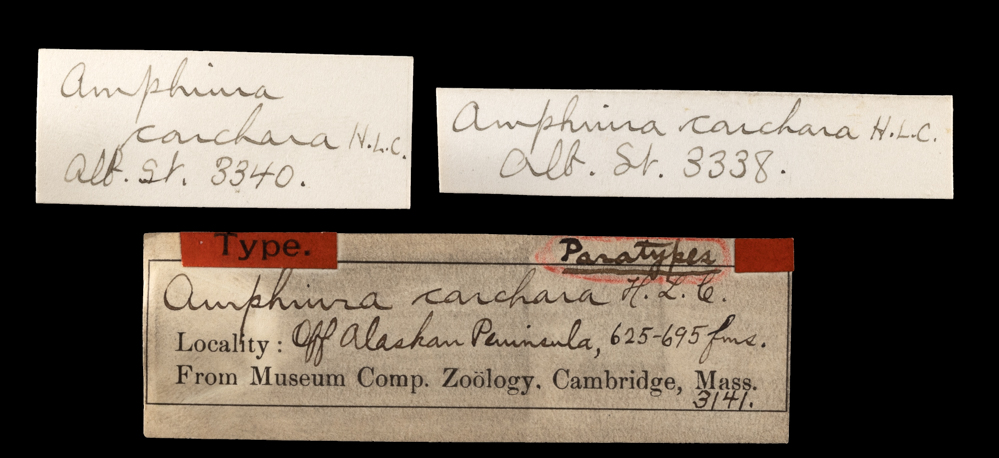 Amphiura
carchara H.L.C.
Alb. St. 3340.
Amphiura carchara H.L.C.
Alb. St. 3338.
Type.
Paratypes
Amphiura carchara H. L. C.
Locality: Off Alaskan Peninsula, 625-695 fms.
From Museum Comp. Zoölogy. Cambridge, Mass.
3141.